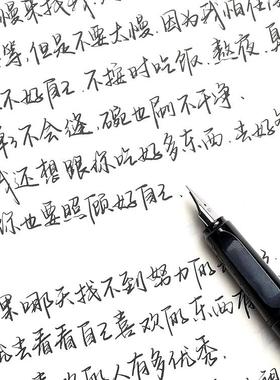 慢来找我
等,但是不要太慢.因为我怕
不好自己.不按时吃饭.熬夜.
不会缝.碗也刷不干净.
我还想跟你吃好多东西.去好
你也要照顾好自己.
果哪天找不到努力的
去看看自己喜欢的东西有
的人有多优秀.